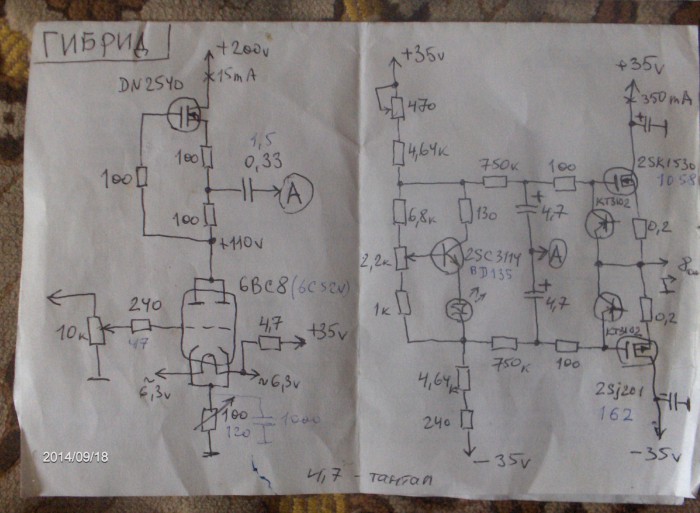 ГИБРИД
+200v
15mA
DN2540
100
1,5
0,33
A
100
100
+110v
6BC8 (6С52V)
240
10к
47
4,7
+35v
~6,3v
~6,3v
100
120
1000
2014/09/18
+35v
470
4,64к
750к
100
6,8к
130
4,7
2,2к
2SC3114
BD135
A
1к
4,7
750к
100
4,64к
240
-35v
+35v
350mA
2SK1530
1058
KT3102
0,2
8
0,2
KT3102
2Sj201
162
-35v
4,7 - тантал